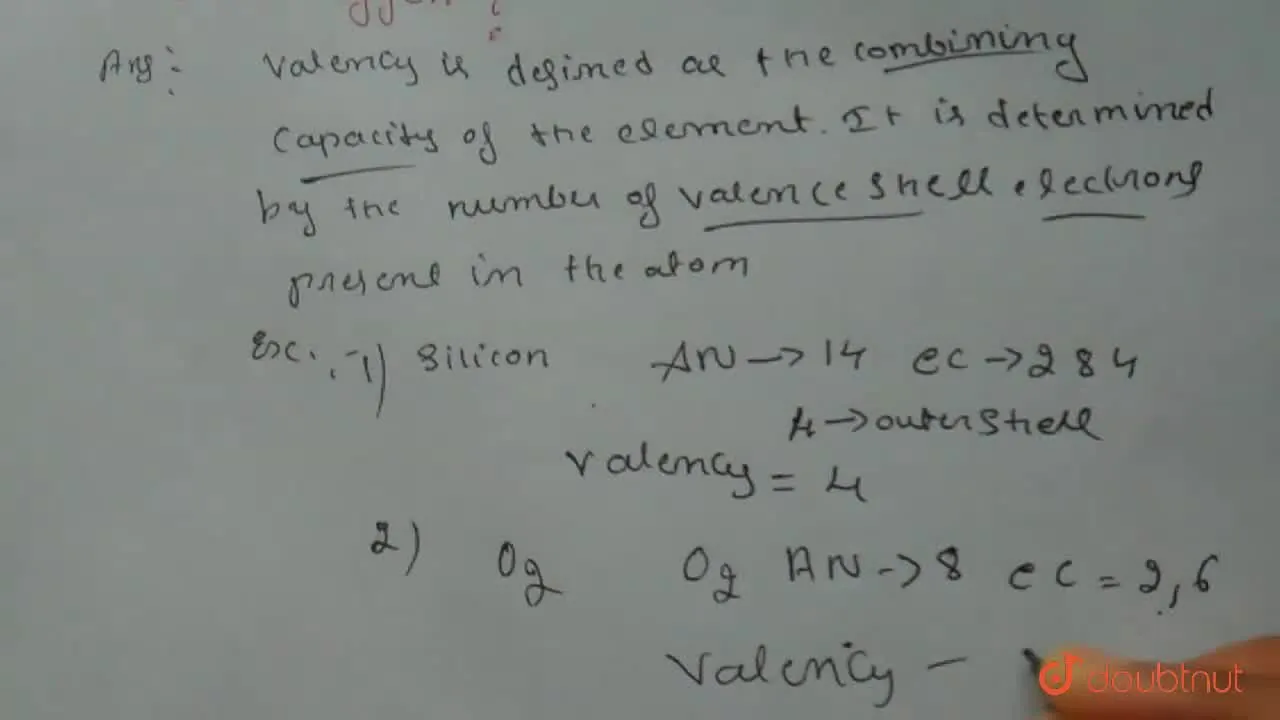 Ans: Valency is defined as the combining
capacity of the element. It is determined
by the number of valence shell electrons
present in the atom
Ex. :- 1) Silicon AN → 14 ec → 2 8 4
4 → outer shell
Valency = 4
2) O2 O2 AN → 8 ec = 2, 6
Valency -
doubtnut